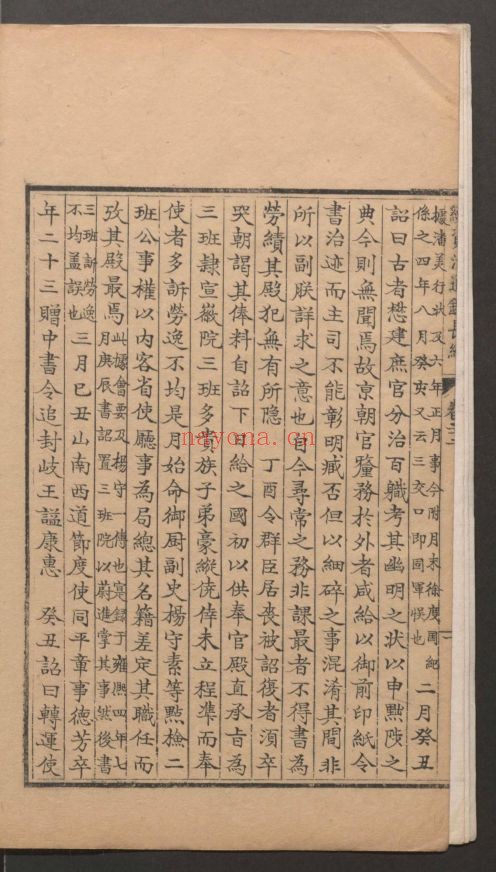 據潘美行狀及六年正月事今附月末徐度國紀係之四年八月癸亥又云三交口即固軍悞也 二月癸丑
詔曰古者懋建庶官分治百職考其幽明之狀以申黜陟之
典今則無聞焉故京朝官釐務於外者咸給以御前印紙令
書治迹而主司不能彰明臧否但以細碎之事混淆其間非
所以副朕詳求之意也自今尋常之務非課最者不得書為
勞績其殿犯無有所隱 丁酉令群臣居喪被詔復者須卒
哭朝謁其俸料自詔下日給之國初以供奉官殿直承旨為
三班隸宣徽院三班多貴族子弟豪縱僥倖未立程準而奉
使者多訴勞逸不均是月始命御厨副史楊守素等㸃檢二
班公事權以内客省使廳事為局總其名籍差定其職任而
攷其殿最焉此據會要及楊守一傳也寔録于雍熙四年七月庚辰書詔置三班院以蔚進掌其事然後書
三班訴勞逸不均盖誤也 三月己丑山南西道節度使同平章事德芳卒
年二十三贈中書令追封岐王謚康惠 癸丑詔曰轉運使
nayona.cn